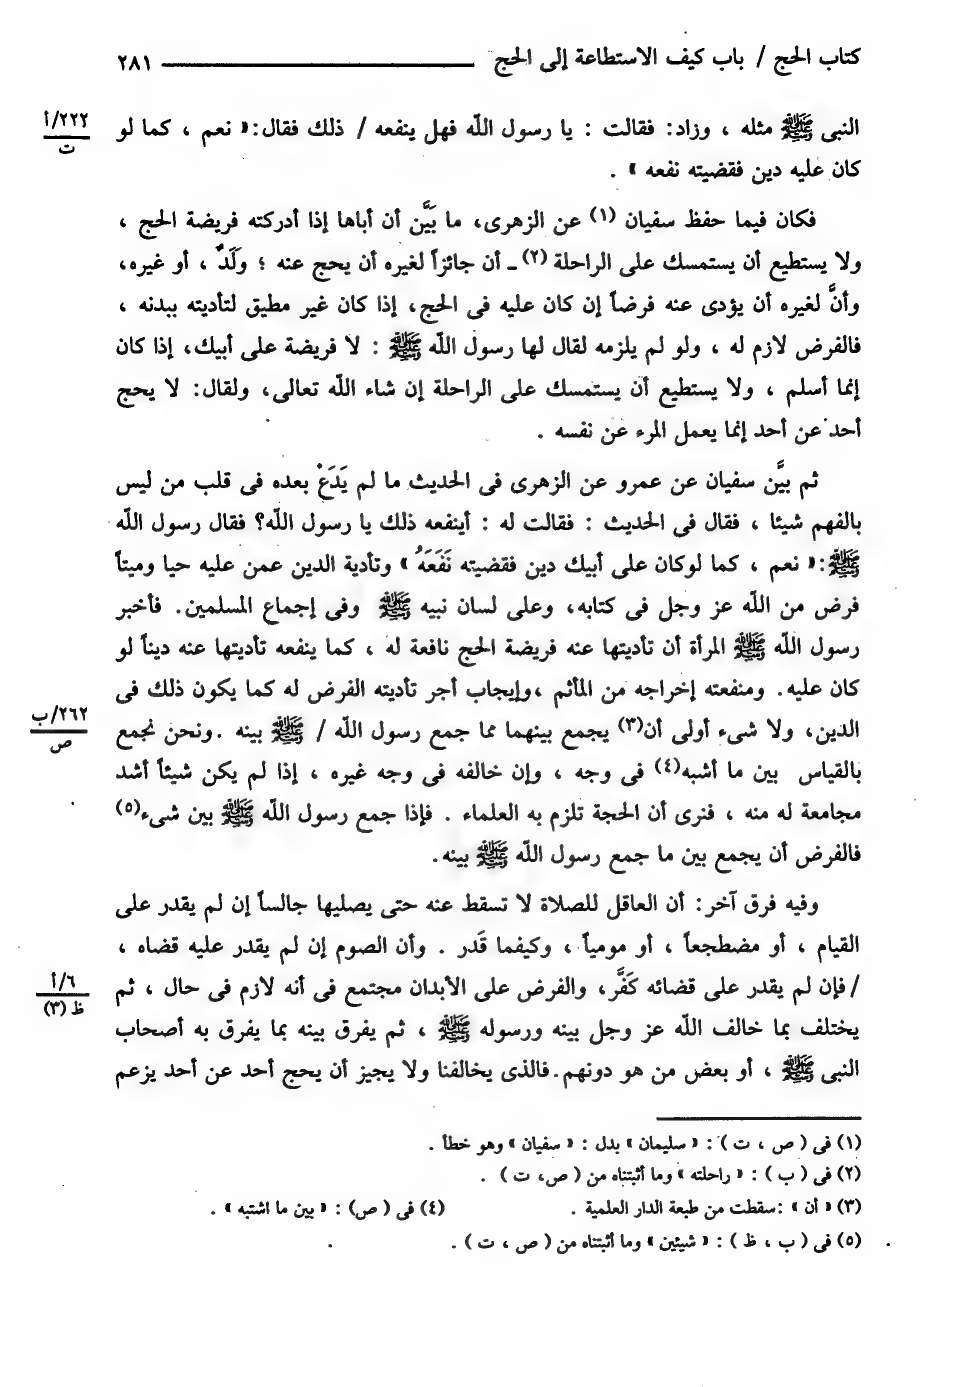 كتاب الحج / باب كيف الاستطاعة إلى الحج ــــــــــــــــ ٢٨١
النبى ﷺ مثله ، وزاد: فقالت : يا رسول اللّه فهل ينفعه / ذلك فقال:« نعم ، كما لو
٢٢٢/أ
ت
كان عليه دين فقضيته نفعه » .
فكان فيما حفظ سفيان (١) عن الزهرى، ما بَيَّن أن أباها إذا أدركته فريضة الحج ،
ولا يستطيع أن يستمسك على الراحلة (٢) ـ أن جائزاً لغيره أن يحج عنه ؛ ولَدٌ ، أو غيره،
وأنَّ لغيره أن يؤدى عنه فرضاً إن كان عليه فى الحج، إذا كان غير مطيق لتأديته ببدنه ،
فالفرض لازم له ، ولو لم يلزمه لقال لها رسول اللّه ﷺ : لا فريضة على أبيك، إذا كان
إنما أسلم ، ولا يستطيع أن يستمسك على الراحلة إن شاء اللّه تعالى، ولقال: لا يحج
أحد عن أحد إنما يعمل المرء عن نفسه .
ثم بيَّن سفيان عن عمرو عن الزهرى فى الحديث ما لم يَدَعْ بعده فى قلب من ليس
بالفهم شيئا ، فقال فى الحديث : فقالت له : أينفعه ذلك يا رسول اللّه؟ فقال رسول اللّه
ﷺ:« نعم ، كما لوكان على أبيك دين فقضيته نَفَعَهُ » وتأدية الدين عمن عليه حيا وميتاً
فرض من اللّه عز وجل فى كتابه، وعلى لسان نبيه ﷺ وفى إجماع المسلمين. فأخبر
رسول اللّه ﷺ المرأة أن تأديتها عنه فريضة الحج نافعة له ، كما ينفعه تأديتها عنه ديناً لو
كان عليه. ومنفعته إخراجه من المأثم ،وإيجاب أجر تأديته الفرض له كما يكون ذلك فى
الدين، ولا شىء أولى أن(٣) يجمع بينهما مما جمع رسول اللّه / ﷺ بينه .ونحن نجمع
٢٦٢/ب
ص
بالقياس بين ما أشبه(٤) فى وجه ، وإن خالفه فى وجه غيره ، إذا لم يكن شيئاً أشد
مجامعة له منه ، فنرى أن الحجة تلزم به العلماء . فإذا جمع رسول اللّه ﷺ بين شىء(٥)
فالفرض أن يجمع بين ما جمع رسول اللّه ﷺ بينه.
وفيه فرق آخر: أن العاقل للصلاة لا تسقط عنه حتى يصليها جالساً إن لم يقدر على
القيام ، أو مضطجعاً ، أو مومياً ، وكيفما قَدر . وأن الصوم إن لم يقدر عليه قضاه ،
/ فإن لم يقدر على قضائه كَفَّر، والفرض على الأبدان مجتمع فى أنه لازم فى حال ، ثم
٦/أ
ظ (٣)
يختلف بما خالف اللّه عز وجل بينه ورسوله ﷺ ، ثم يفرق بينه بما يفرق به أصحاب
النبى ﷺ ، أو بعض من هو دونهم.فالذى يخالفنا ولا يجيز أن يحج أحد عن أحد يزعم
(١) فى ( ص ، ت ) : « سليمان » بدل : « سفيان » وهو خطأ .
(٢) فى ( ب ) : « راحلته » وما أثبتناه من ( ص، ت ) .
(٣) « أن » :سقطت من طبعة الدار العلمية . (٤) فى ( ص) : « بين ما اشتبه » .
(٥) فى ( ب ، ظ ) : « شيئين » وما أثبتناه من ( ص ، ت ) .